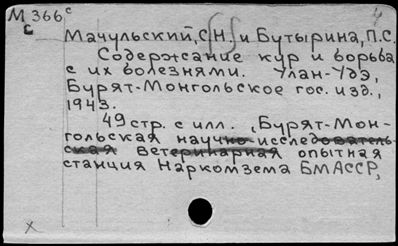 М 366 с
с
4
Мачульский, С.Н. и Бутырина, П.С.
Содержание кур и борьба
с их болезнями. Улан-Удэ,
Бурят-Монгольское гос. изд.,
1943.
49 стр. с илл. , Бурят-Мон-
гольская научно-исследователь-
ская ветеринарная опытная
станция Наркомзема БМАССР,
x